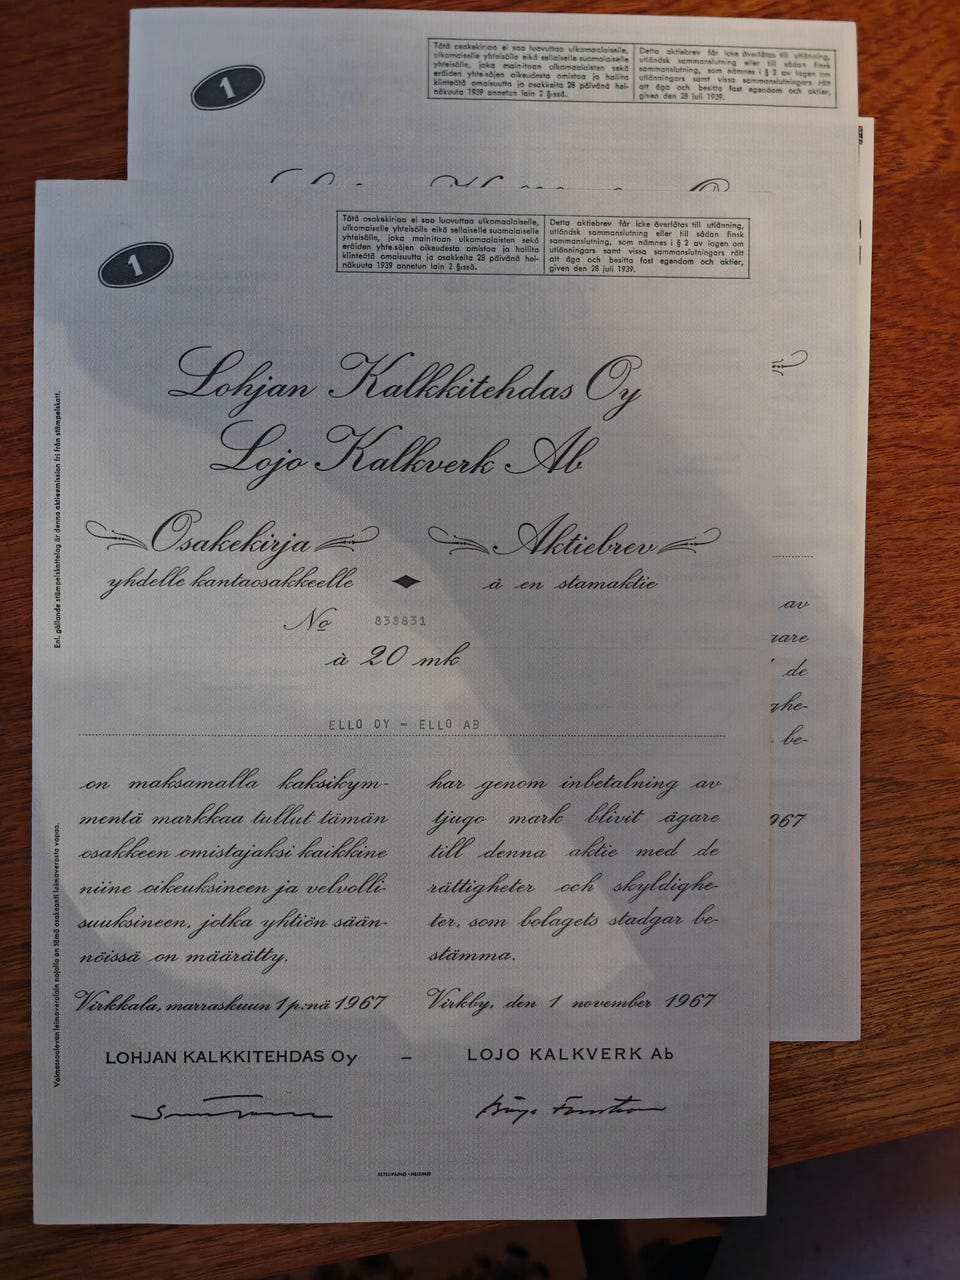 1
Tätä osakekirjaa ei saa luovuttaa ulkomaalaiselle,
ulkomaiselle yhteisölle eikä sellaiselle suomalaiselle
yhteisölle, joka mainitaan ulkomaalaisten sekä
eräiden yhteisöjen oikeudesta omistaa ja hallita
kiinteätä omaisuutta ja osakkeita 28 päivänä hei-
näkuuta 1939 annetun lain 2 §:ssä.
Detta aktiebrev får icke överlåtas till utlänning,
utländsk sammanslutning eller till sådan finsk
sammanslutning, som nämnes i § 2 av lagen om
utlänningars samt vissa sammanslutningars rätt
att äga och besitta fast egendom och aktier,
given den 28 juli 1939.
1
Tätä osakekirjaa ei saa luovuttaa ulkomaalaiselle,
ulkomaiselle yhteisölle eikä sellaiselle suomalaiselle
yhteisölle, joka mainitaan ulkomaalaisten sekä
eräiden yhteisöjen oikeudesta omistaa ja hallita
kiinteätä omaisuutta ja osakkeita 28 päivänä hei-
näkuuta 1939 annetun lain 2 §:ssä.
Detta aktiebrev får icke överlåtas till utlänning,
utländsk sammanslutning eller till sådan finsk
sammanslutning, som nämnes i § 2 av lagen om
utlänningars samt vissa sammanslutningars rätt
att äga och besitta fast egendom och aktier,
given den 28 juli 1939.
Lohjan Kalkkitehdas Oy
Lojo Kalkverk Ab
Osakekirja
yhdelle kantaosakkeelle
Aktiebrev
à en stamaktie
No 838831
à 20 mk
ELLO OY - ELLO AB
on maksamalla kaksikym-
mentä markkaa tullut tämän
osakkeen omistajaksi kaikkine
niine oikeuksineen ja velvolli-
suuksineen, jotka yhtiön sään-
nöissä on määrätty.
Virkkala, marraskuun 1 p:nä 1967
har genom inbetalning av
tjugo mark blivit ägare
till denna aktie med de
rättigheter och skyldighe-
ter, som bolagets stadgar be-
stämma.
Virkby, den 1 november 1967
LOHJAN KALKKITEHDAS Oy - LOJO KALKVERK Ab
SETELIPAINO • HELSINKI
Enl. gällande stämpelskattelag är denna aktieemission fri från stämpelskatt.
Voimassaolevan leimaverolain nojalla on tämä osakeanti leimaverosta vapaa.
av
de
ghe-
be-
967